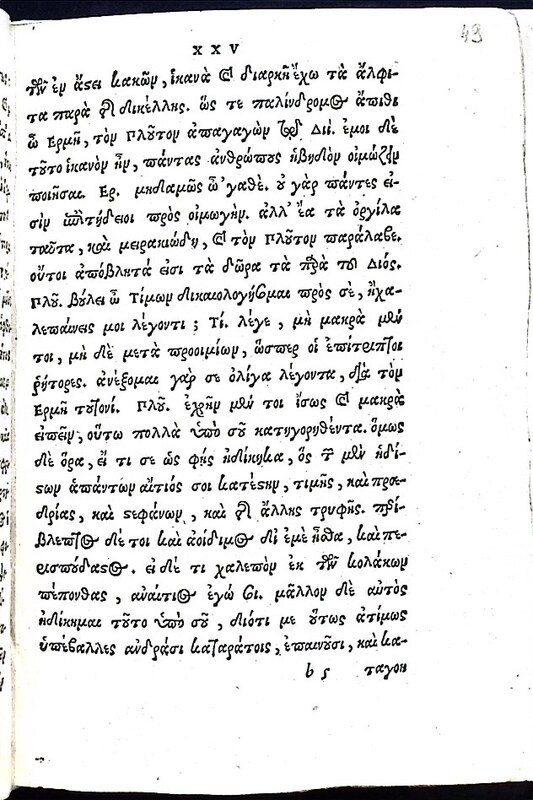 49
XXV
τῶν ἐν ἄστει κακῶν, ἱκανὰ καὶ διαρκῆ ἔχω τὰ ἄλφι-
τα παρὰ τῆς δικέλλης. ὥς τε παλίνδρομος ἄπιθι
ὦ Ἑρμῆ, τὸν Πλοῦτον ἀπαγαγὼν τῷ Διί. ἐμοὶ δὲ
τοῦτο ἱκανὸν ἦν, πάντας ἀνθρώπους ἡβηδὸν οἰμώζειν
ποιῆσαι. Ερ. μηδαμῶς ὦ ’γαθέ. οὐ γὰρ πάντες εἰ-
σὶν ἐπιτήδειοι πρὸς οἰμωγήν. ἀλλ’ ἔα τὰ ὀργίλα
ταῦτα, καὶ μειρακιώδη, καὶ τὸν Πλοῦτον παράλαβε.
οὔτοι ἀπόβλητά εἰσι τὰ δῶρα τὰ παρὰ τοῦ Διός.
Πλοῦ. βούλει ὦ Τίμων δικαιολογήσωμαι πρὸς σὲ, ἢ χα-
λεπαίνεις μοι λέγοντι; Τί. λέγε, μὴ μακρὰ μέν
τοι, μὴ δὲ μετὰ προοιμίων, ὥσπερ οἱ ἐπίτριπτοι
ῥήτορες. ἀνέξομαι γάρ σε ὀλίγα λέγοντα, διὰ τὸν
Ἑρμῆ τουτονί. Πλοῦ. ἐχρῆν μέν τοι ἴσως καὶ μακρὰ
εἰπεῖν, οὕτω πολλὰ ὑπὸ σοῦ κατηγορηθέντα. ὅμως
δὲ ὅρα, εἴ τί σε ὡς φῂς ἠδίκηκα, ὃς τῶν μὲν ἡδί-
στων ἁπάντων αἴτιός σοι κατέστην, τιμῆς, καὶ προε-
δρίας, καὶ στεφάνων, καὶ τῆς ἄλλης τρυφῆς. περί-
βλεπτος δέ τοι καὶ ἀοίδιμος δι’ ἐμὲ ἦσθα, καὶ πε-
ρισπούδαστος. εἰ δέ τι χαλεπὸν ἐκ τῶν κολάκων
πέπονθας, ἀναίτιος ἐγώ σοι. μᾶλλον δὲ αὐτὸς
ἠδίκημαι τοῦτο ὑπὸ σοῦ, διότι με οὕτως ἀτίμως
ὑπέβαλλες ἀνδράσι καταράτοις, ἐπαινοῦσι, καὶ κα-
b 5 ταγοη